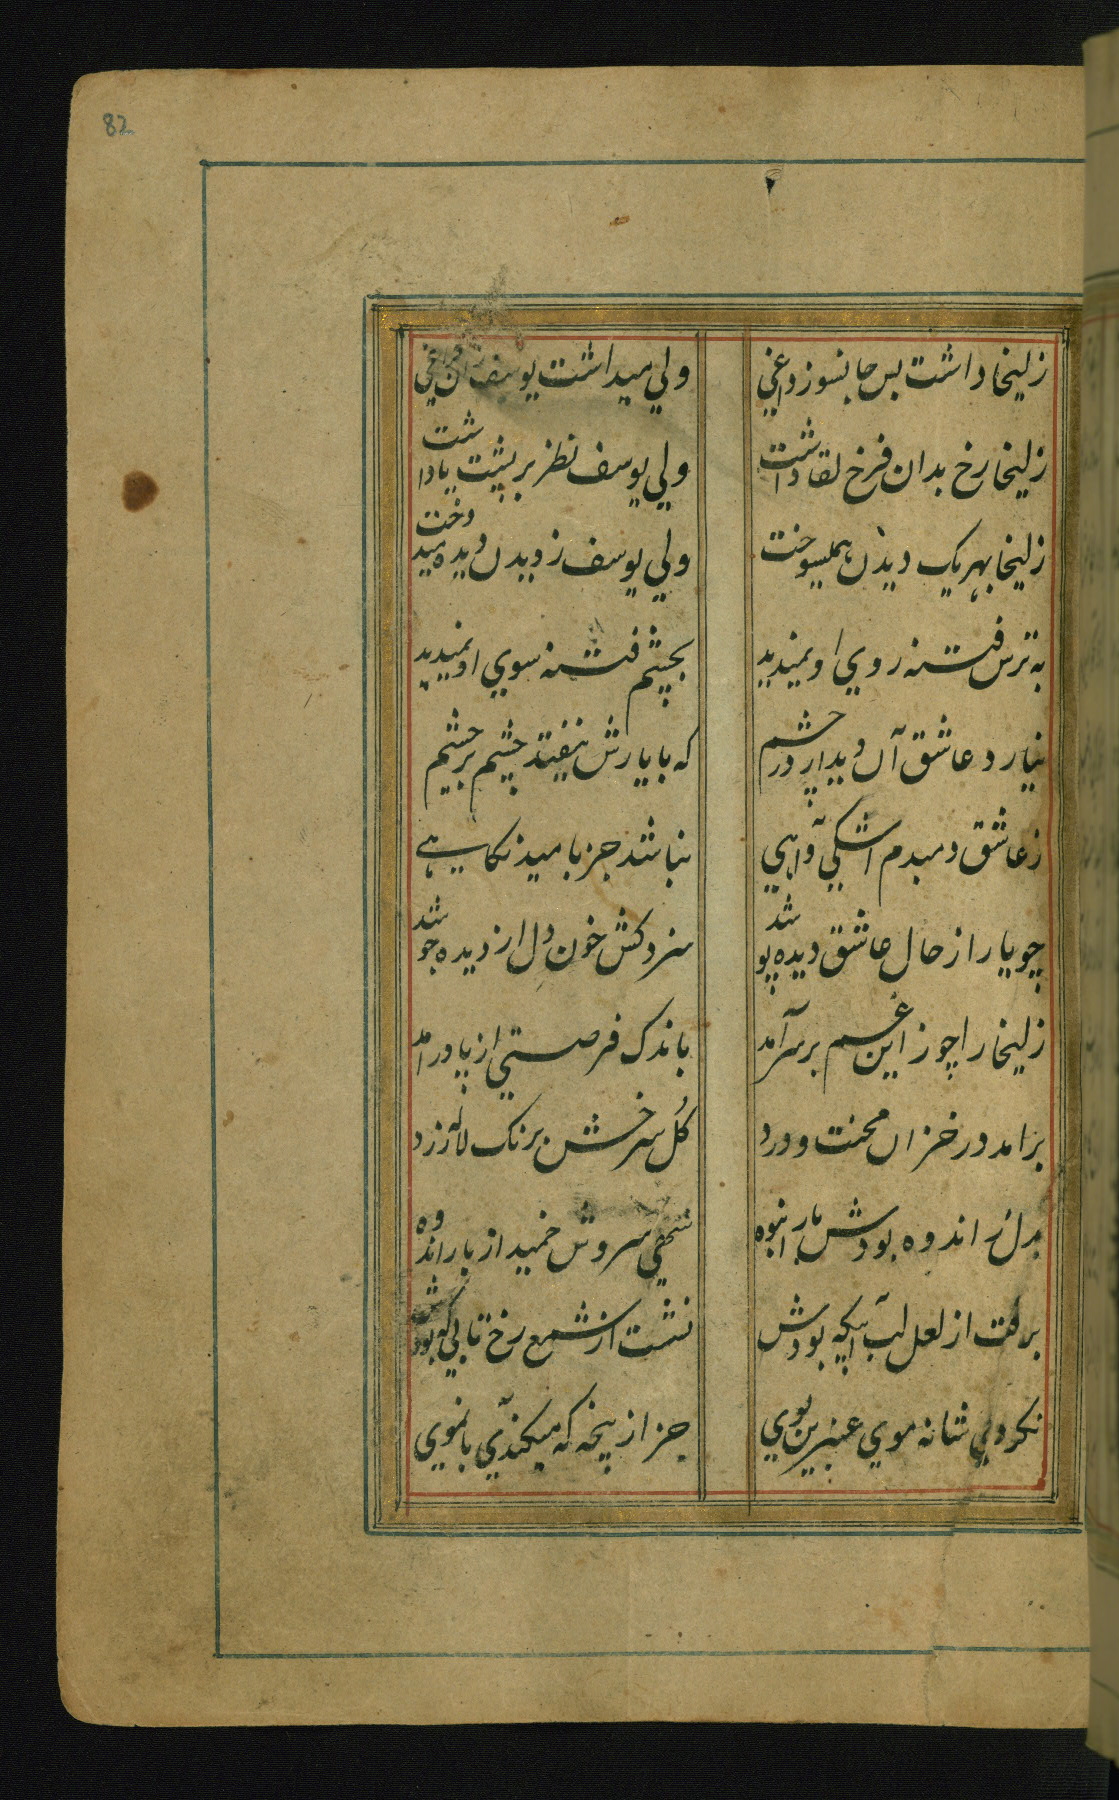 82
زلیخا داشت بس جانسوز داغی ولی میداشت یوسف زان فراغی
زلیخا رخ بدان فرخ لقا داشت ولی یوسف نظر بر پشت پا داشت
زلیخا بهر یک دیدن همیسوخت ولی یوسف ز دیدن دیده میدوخت
به ترس فتنه روی او نمیدید بچشم فتنه سوی او نمیدید
نیارد عاشق آن دیدار در چشم که با یارش نیفتد چشم بر چشم
ز عاشق دمبدم اشکی و آهی نباشد جز بامید نکاهی
چو یار از حال عاشق دیده پوشد سزد کش خون دل از دیده جوشد
زلیخا را چو زاین غم بر سر آمد باندک فرصتی از پا در آمد
بر آمد در خزان محنت و درد کل سرخش برنک لاله زرد
بدل ز اندوه بودش بار انبوه سهی سروش خمید از بار اندوه
برفت از لعل لب آبیکه بودش نشست از شمع رخ تابی که بودش
نکردی شانه موی عنبرین بوی جز از پنجه که میکندی بآنموی